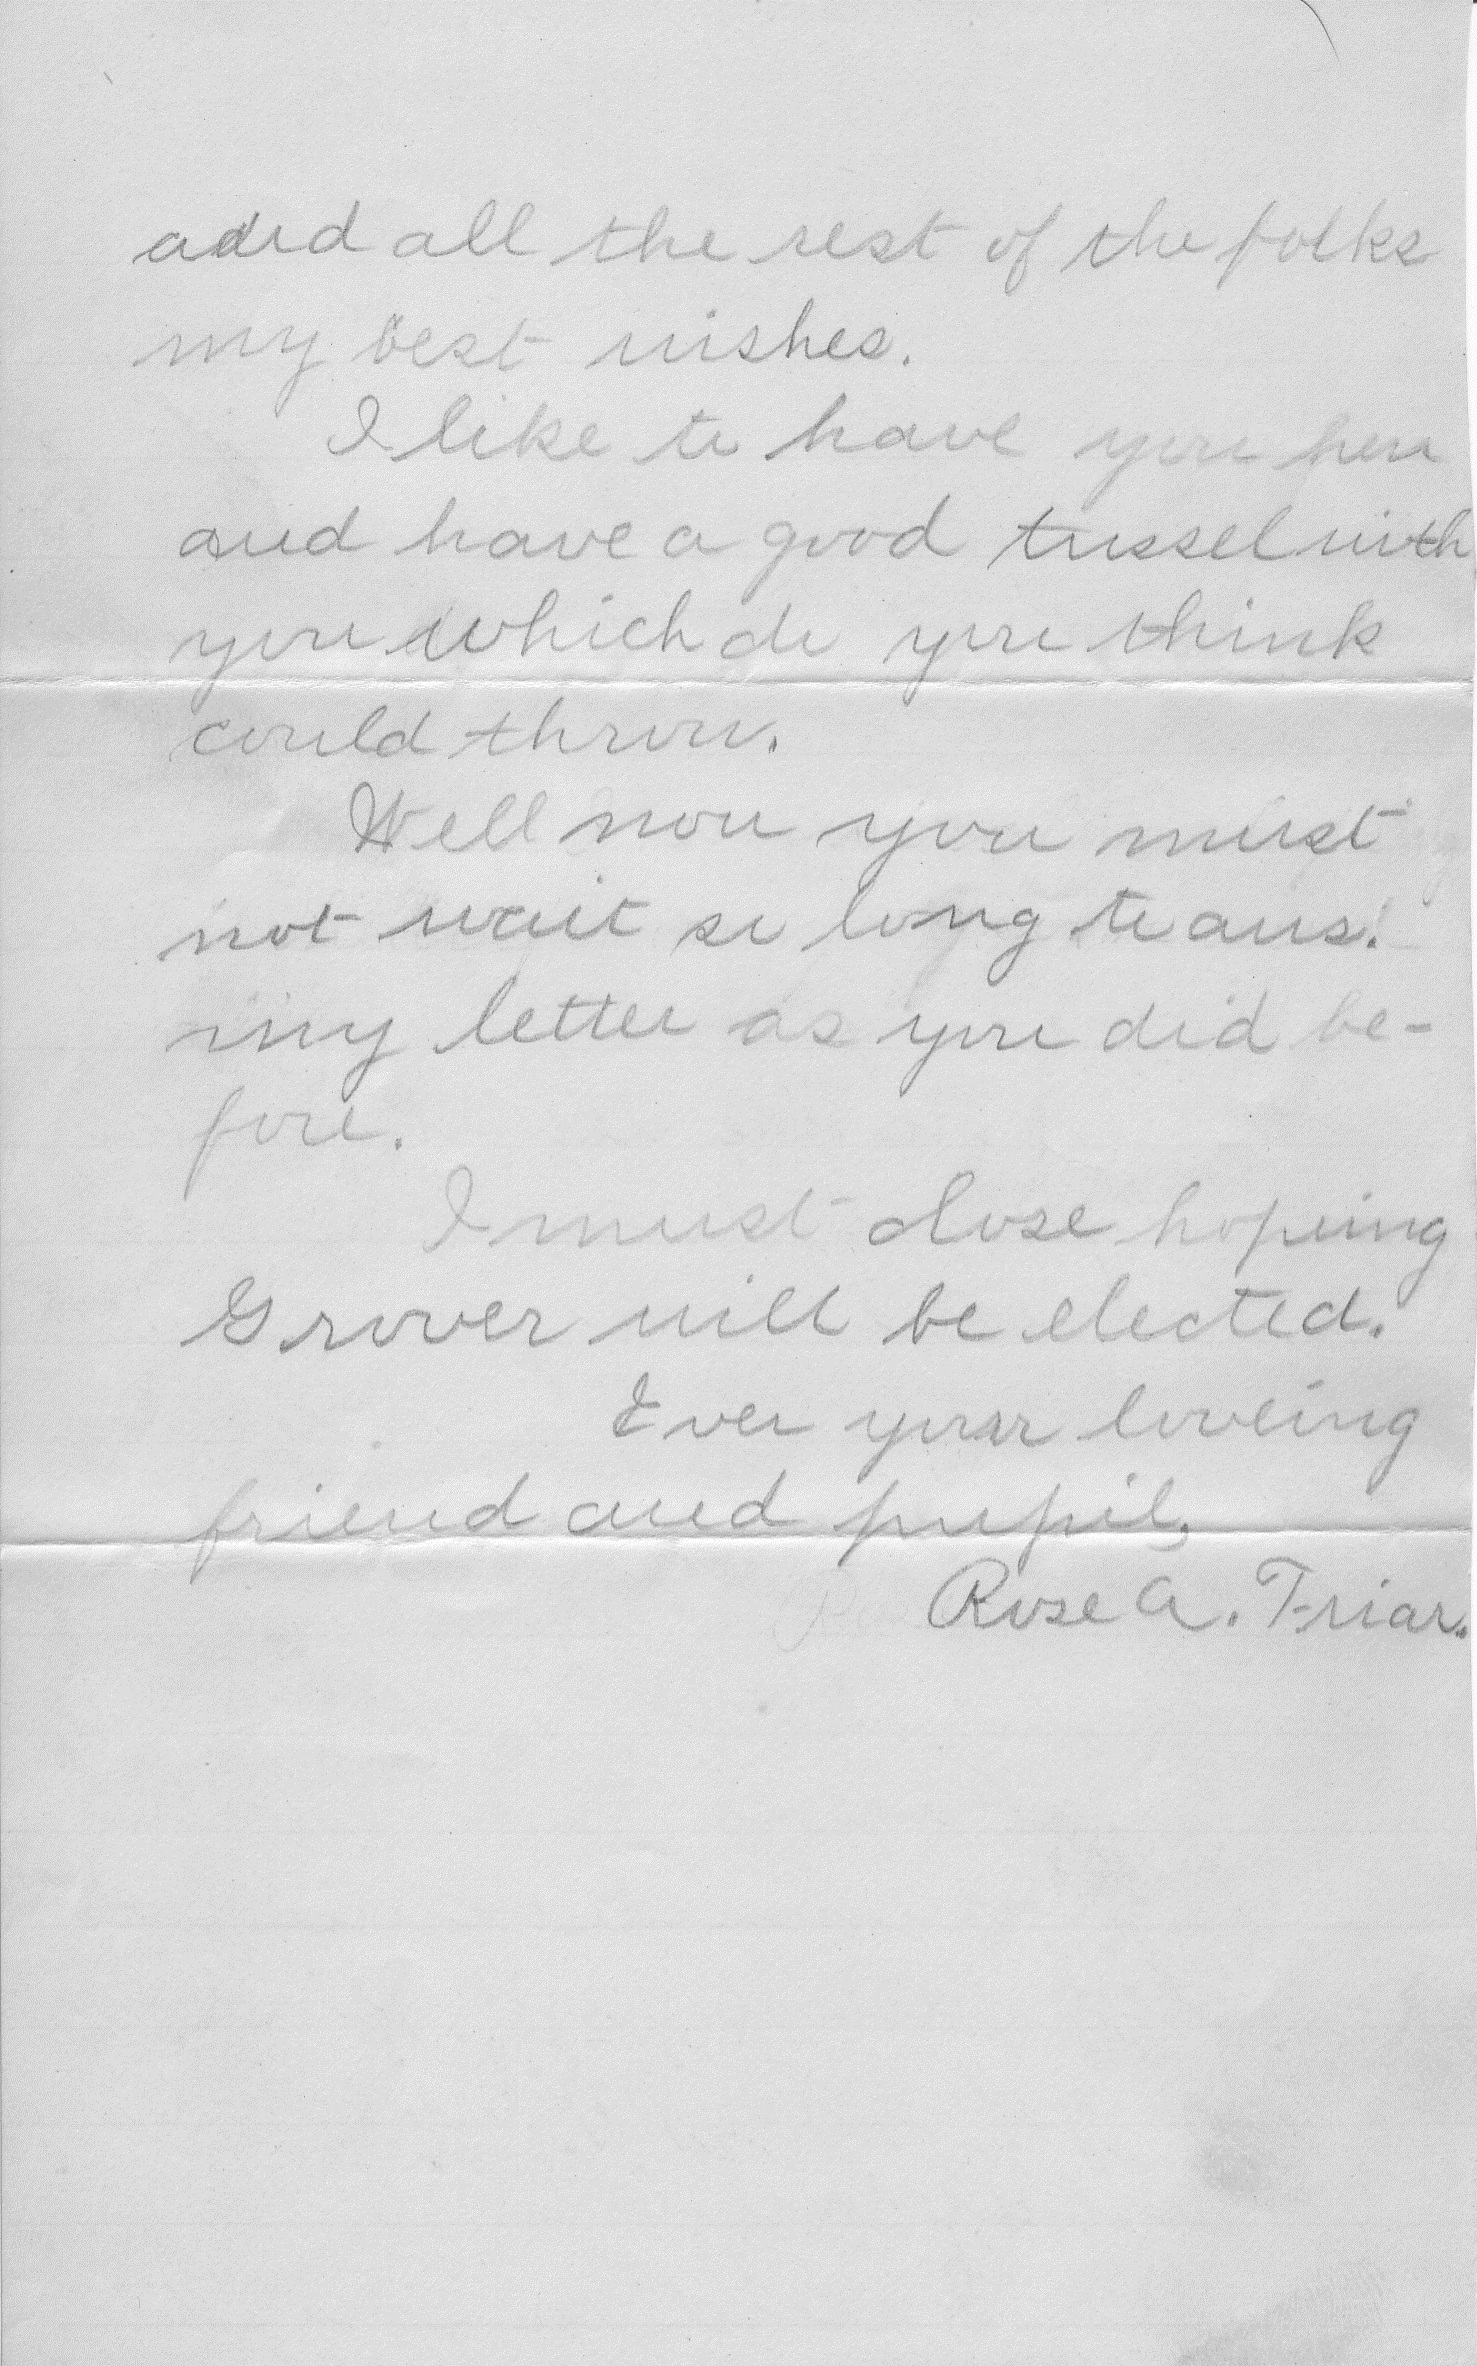 and all the rest of the folks
my best wishes.
I like to have you here
and have a good tussel with
you which do you think
could throw.
Well now you must
not wait so long to ans.
my letter as you did be-
fore.
I must close hoping
Grover will be elected.
Ever your loveing
friend and pupil,
Rose A. Friar.